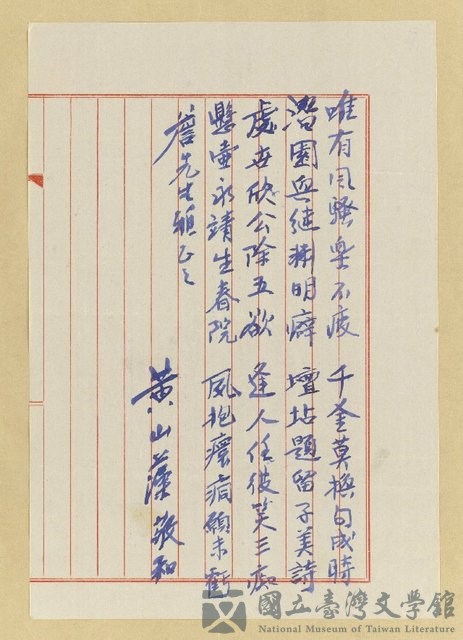 唯有風騷樂不疲 千金莫換句成時
潛園無繼耕明癖 壇坫題留子美詩
處世欣公除五欲 逢人任彼笑三痴
懸壺永靖生春院 夙抱瘝痌願未虧
詹先生 正之
黃山藻敬和
國立臺灣文學館
National Museum of Taiwan Literature